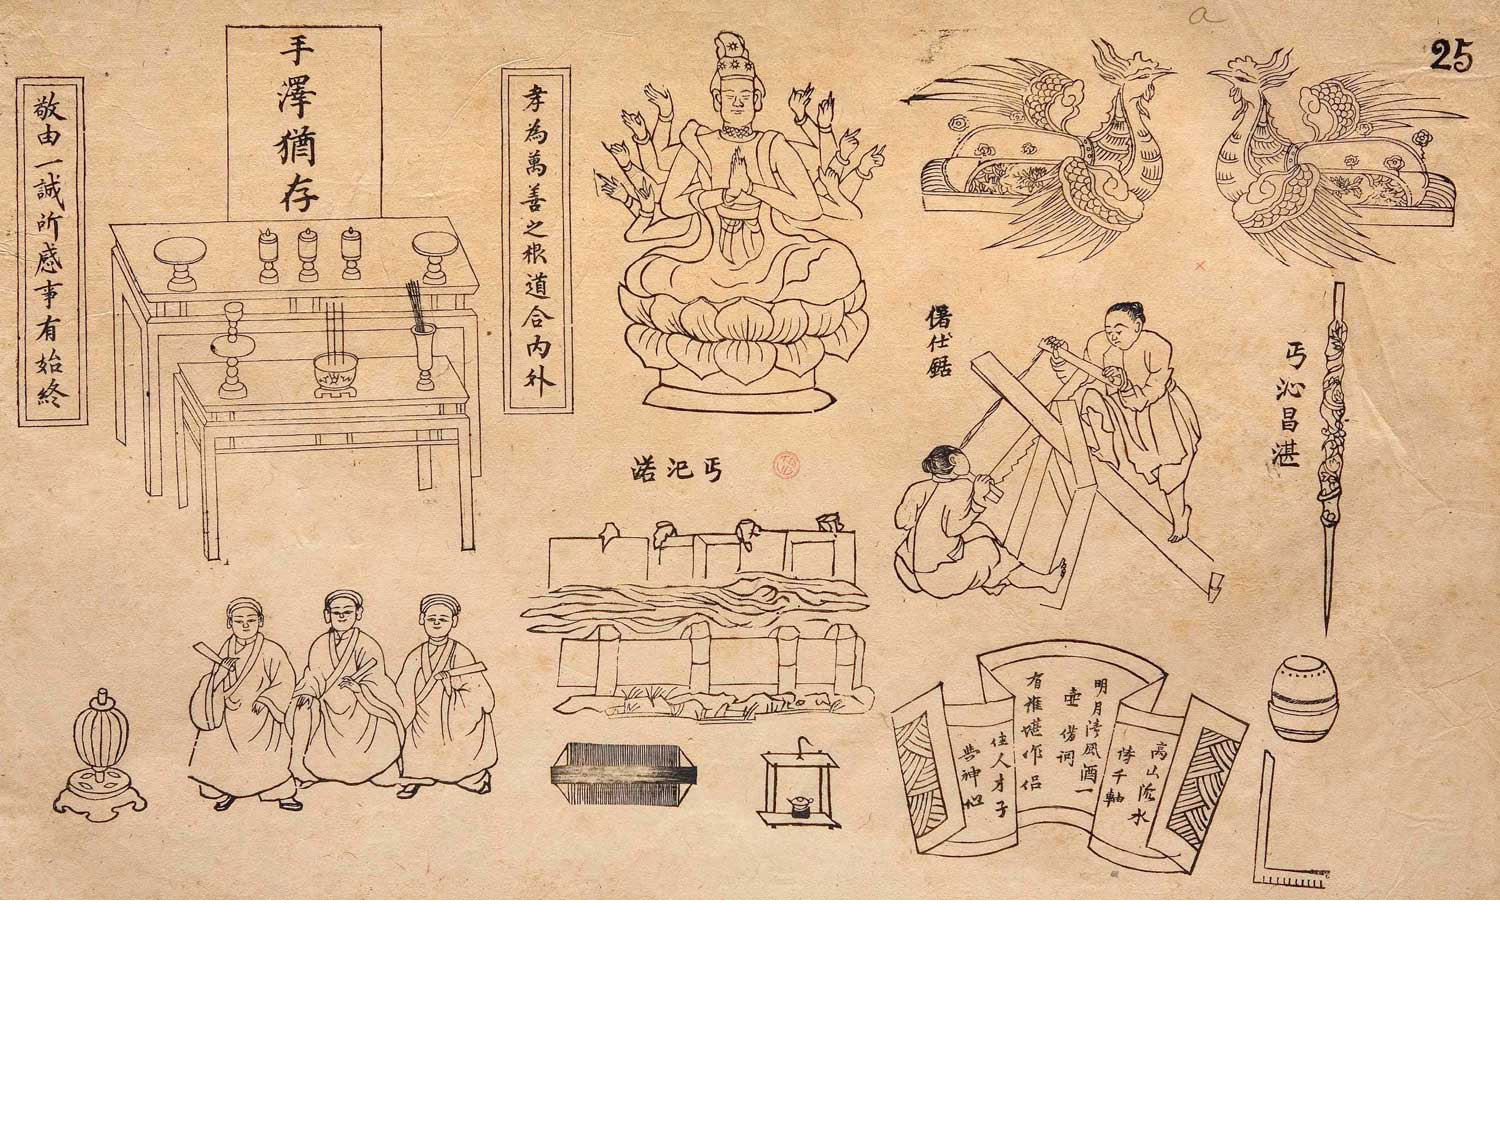 25
敬由一誠所感事有始終
手澤猶存
孝為萬善之根道合内外
丐汜渃
丐沁昌湛
高山流水
詩千軸
明月清風酒一
壺 借詞
有誰堪作侶
佳人才子